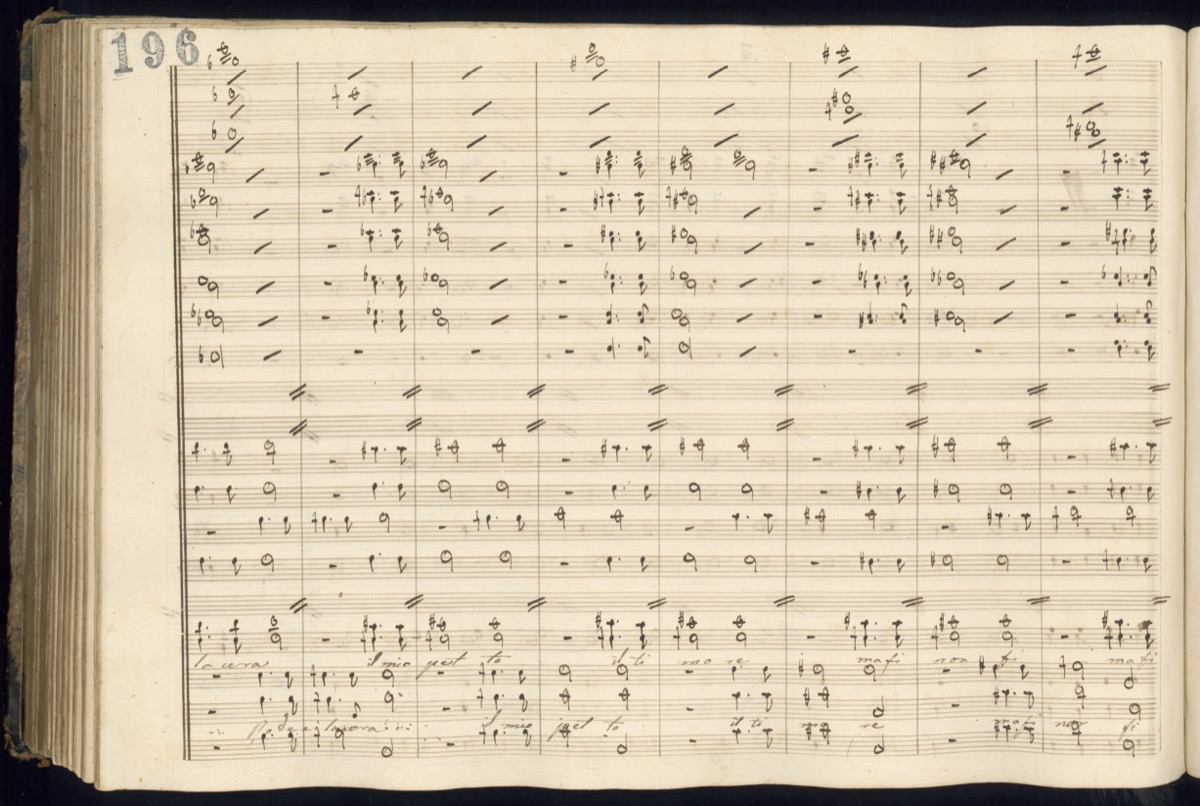 196
la cura il mio pet to il ti mo re ma fi non fi ma fi
il mio pet to il ti mo re ma fi non fi